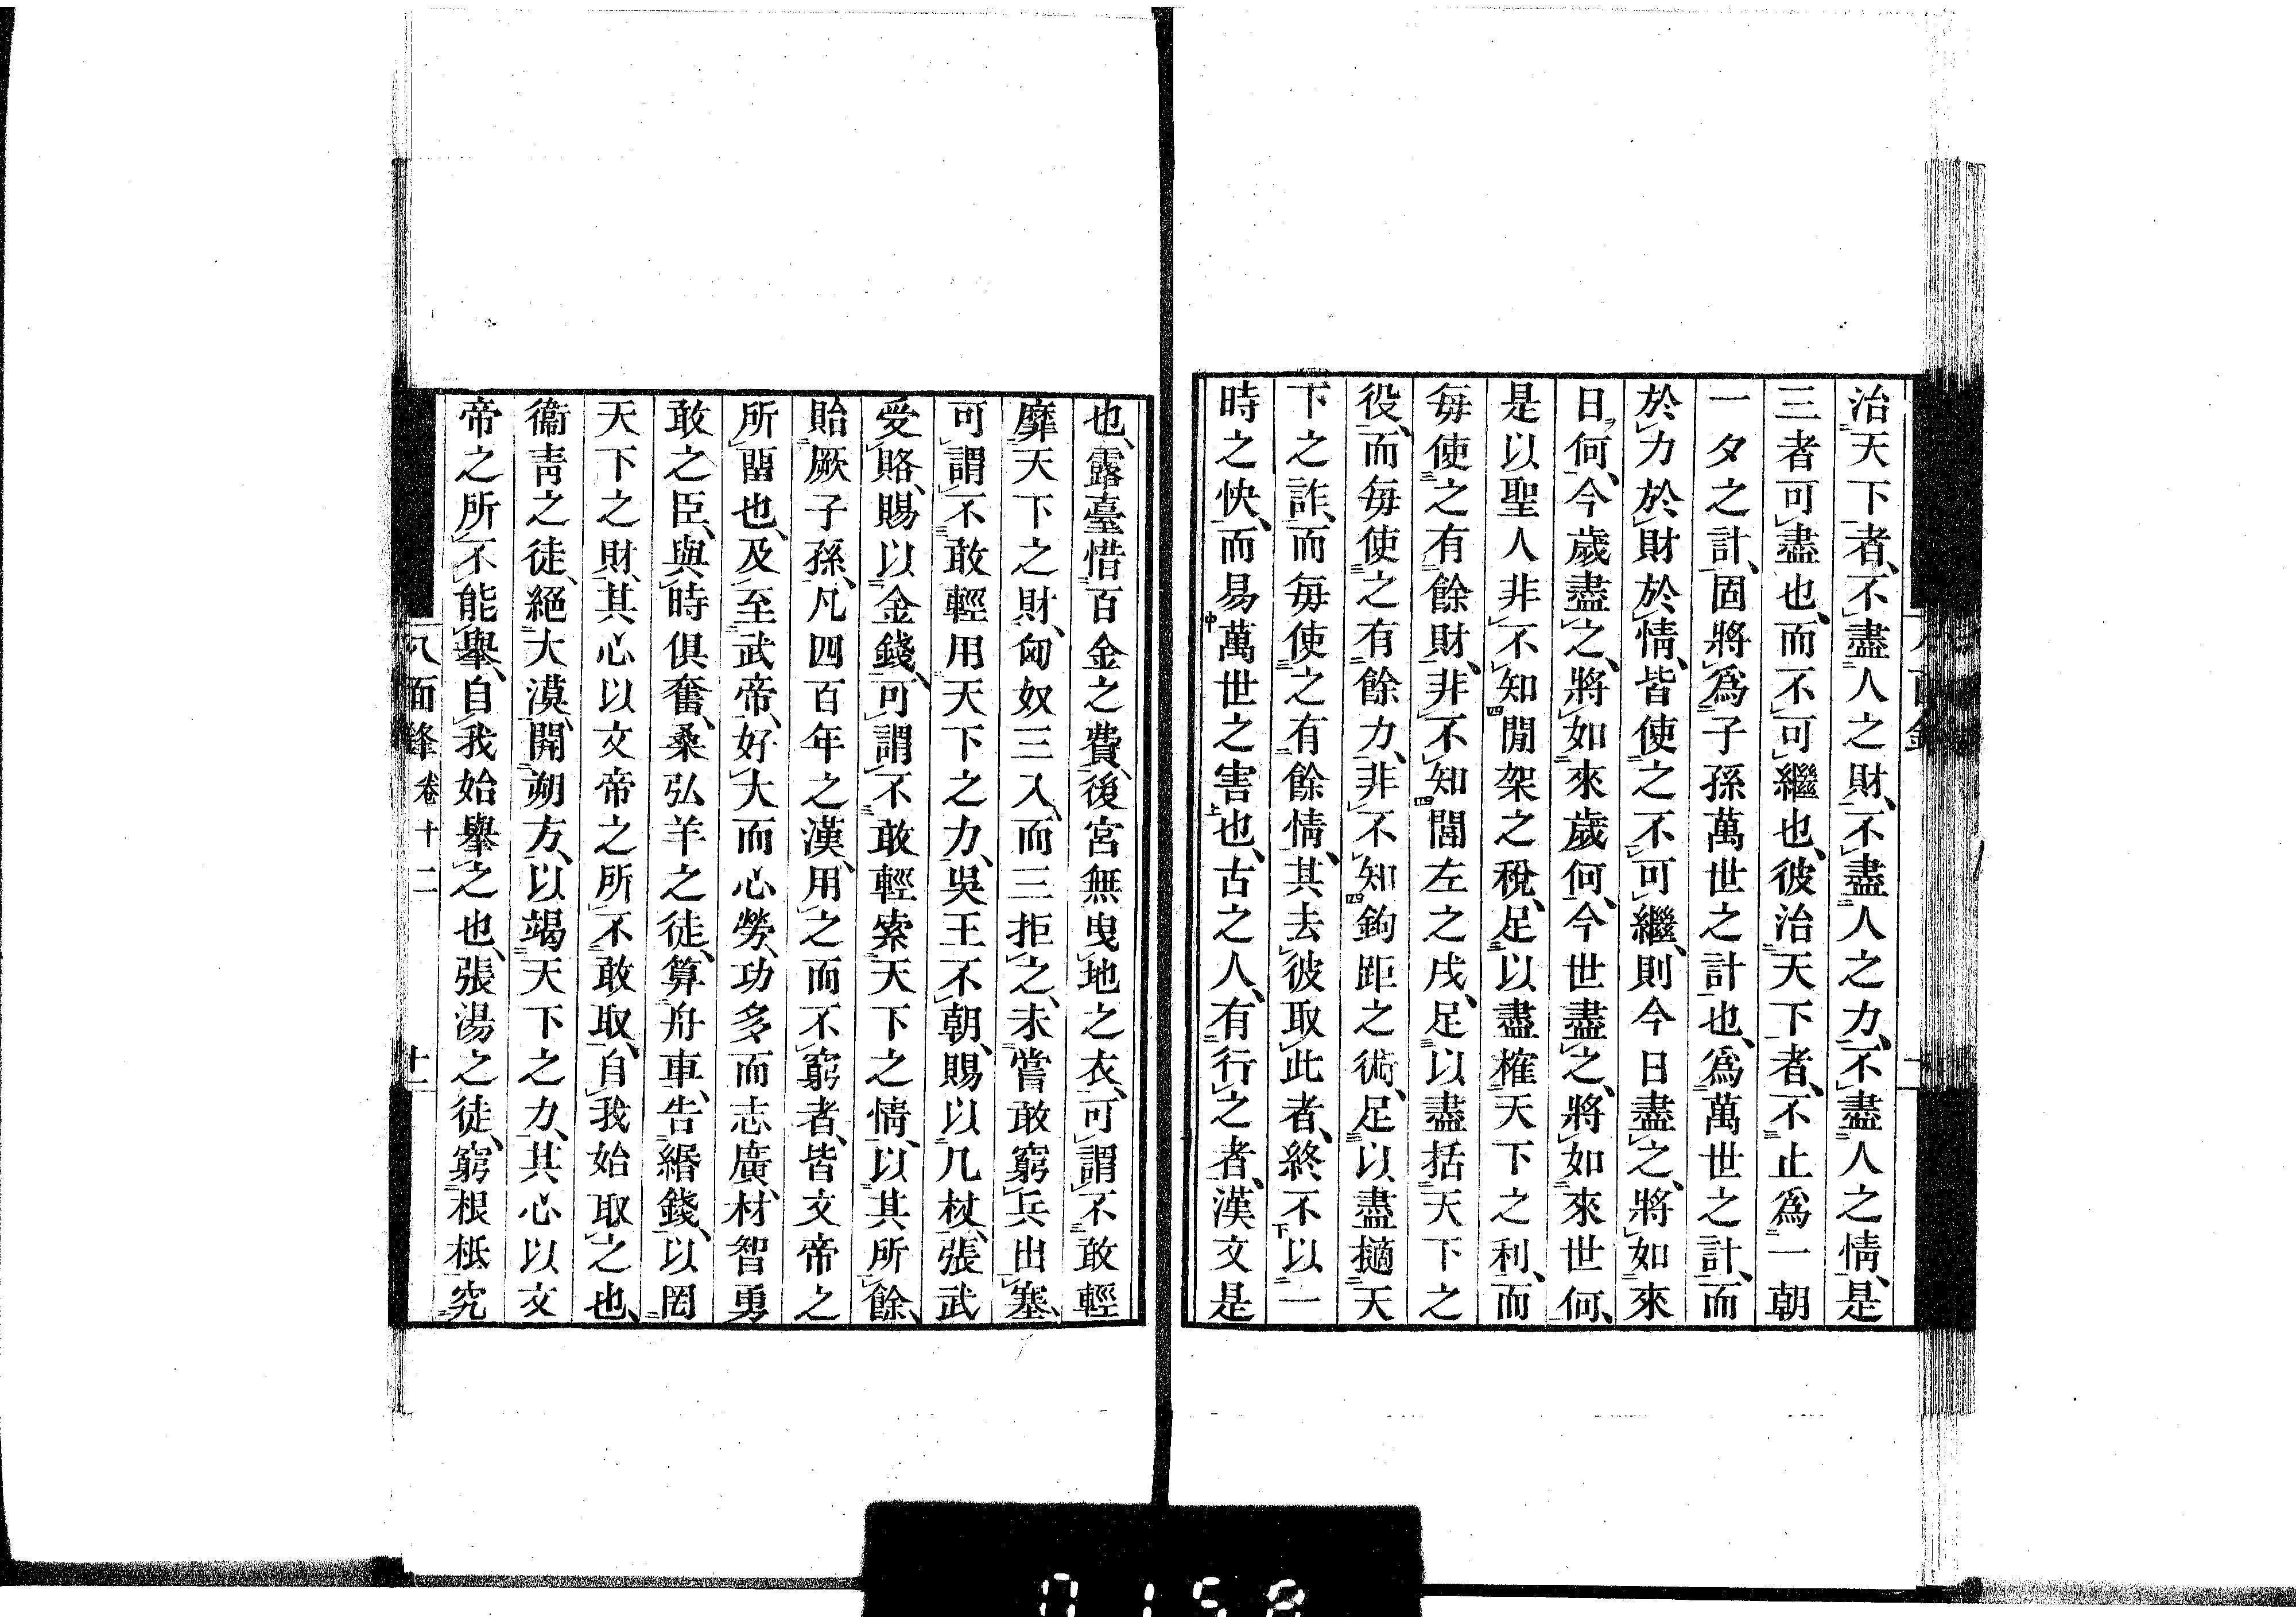 治天下者、不盡人之財、不盡人之力、不盡人之情、是
三者可盡也、而不可繼也、彼治天下者、不止爲一朝
一夕之計、固將爲子孫萬世之計也、爲萬世之計、而
於力於財於情、皆使之不可繼、則今日盡之、將如來
日何、今歲盡之、將如來歲何、今世盡之、將如來世何、
是以聖人非不知閒架之稅、足以盡榷天下之利、而
每使之有餘財、非不知閭左之戍、足以盡括天下之
役、而每使之有餘力、非不知鉤距之術、足以盡擿天
下之詐、而每使之有餘情、其去彼取此者、終不以一
時之快、而易萬世之害也、古之人、有行之者、漢文是
也、露臺惜百金之費、後宮無曳地之衣、可謂不敢輕
靡天下之財、匈奴三入、而三拒之、未嘗敢窮兵出塞、
可謂不敢輕用天下之力、吳王不朝、賜以几杖、張武
受賂、賜以金錢、可謂不敢輕索天下之情、以其所餘、
貽厥子孫、凡四百年之漢、用之而不窮者、皆文帝之
所畱也、及至武帝、好大而心勞、功多而志廣、材智勇
敢之臣、與時俱奮、桑弘羊之徒、算舟車、告緡錢、以罔
天下之財、其心以文帝之所不敢取、自我始取之也、
衞青之徒、絕大漠、開朔方、以竭天下之力、其心以文
帝之所不能舉、自我始舉之也、張湯之徒、窮根柢究
八面鋒 卷十二 十一